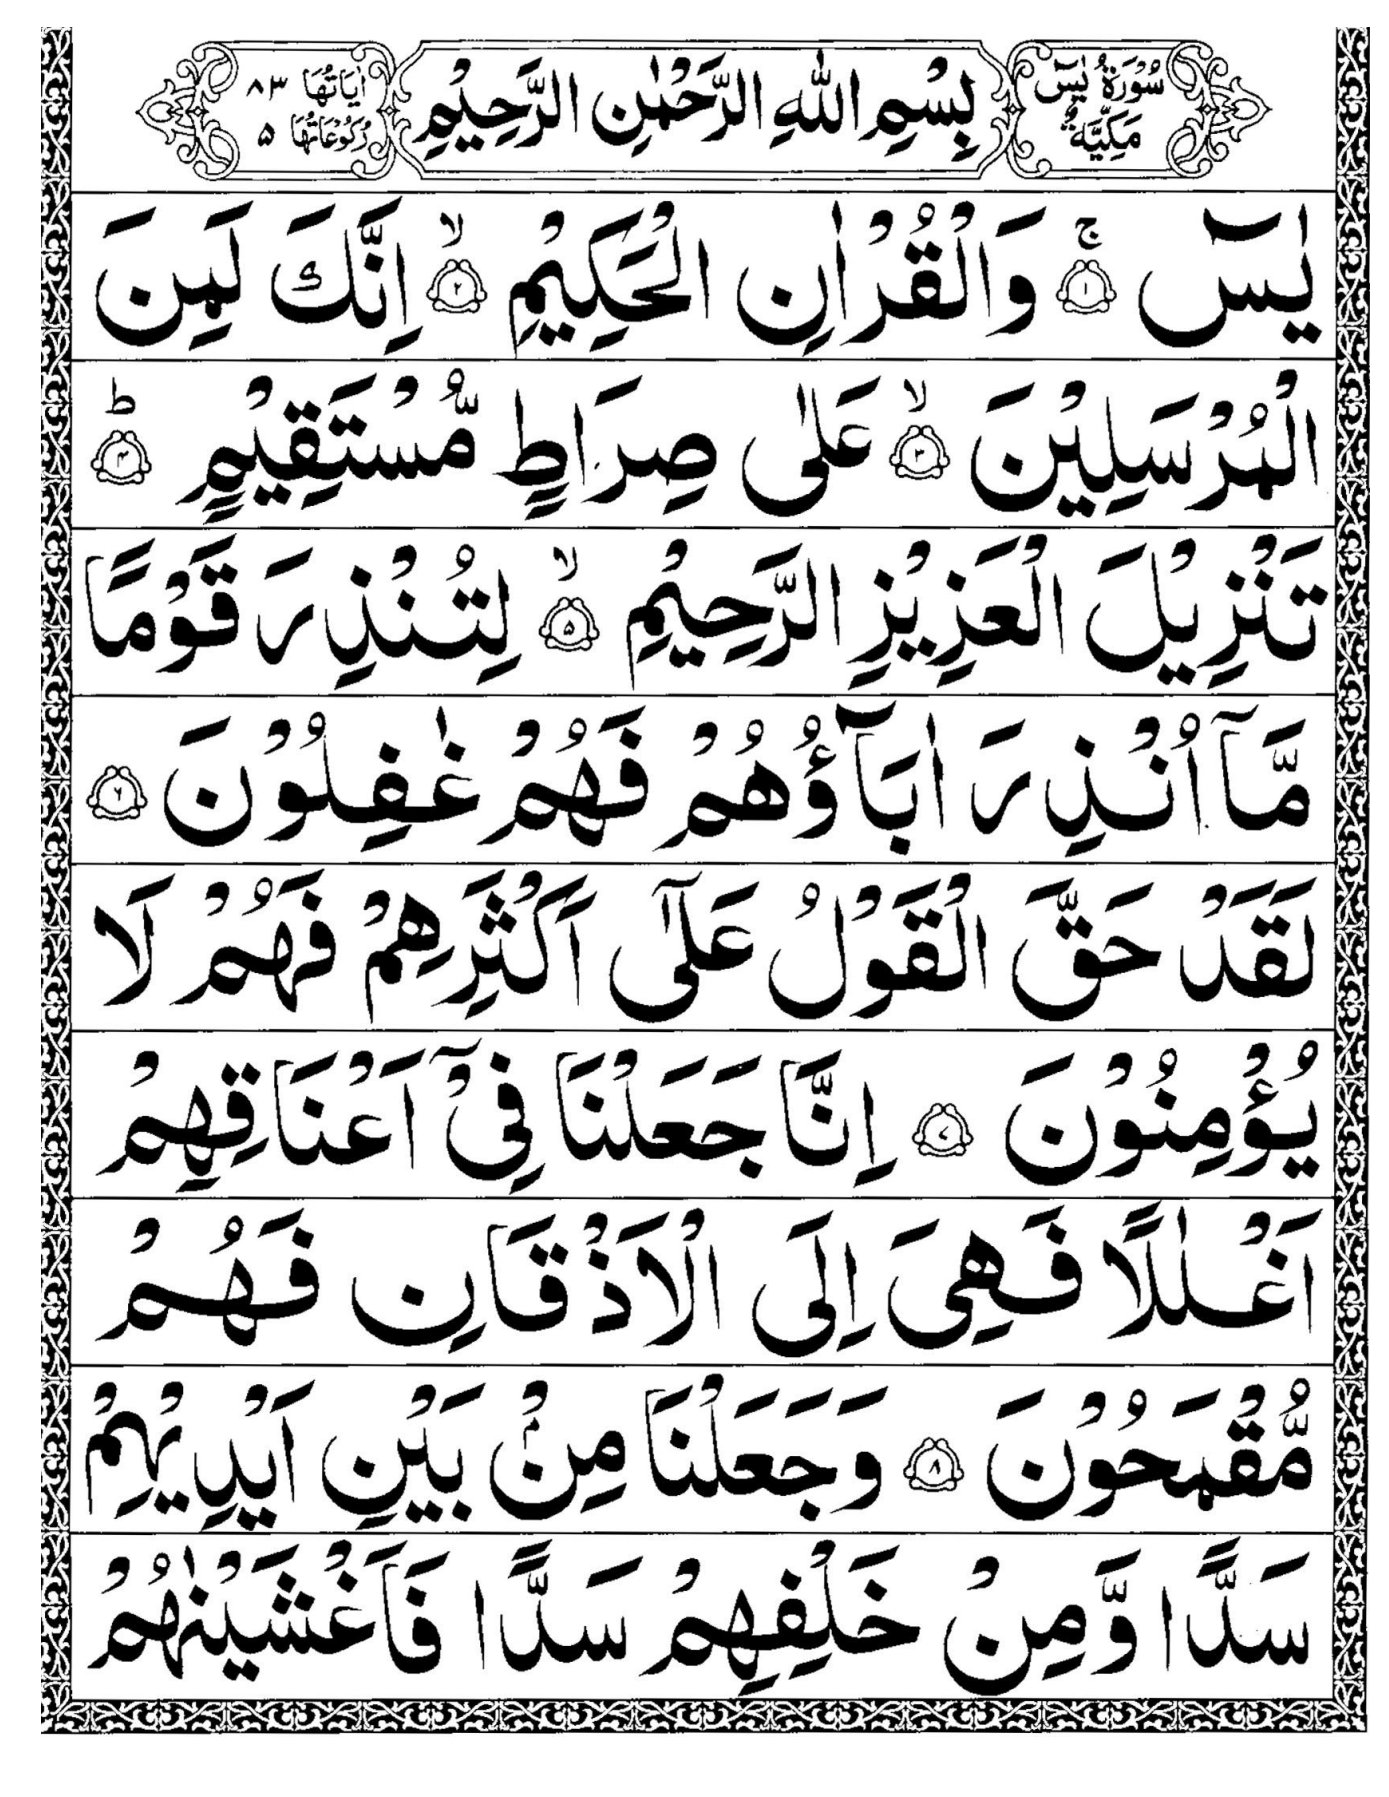 سُوْرَةُ يٰسٓ مَكِّيَّةٌ
بِسْمِ اللّٰهِ الرَّحْمٰنِ الرَّحِيْمِ
اٰيَاتُهَا ٨٣ رُكُوْعَاتُهَا ٥
يٰسٓ ۚ ﴿١﴾ وَالْقُرْاٰنِ الْحَكِيْمِ ۙ ﴿٢﴾ اِنَّكَ لَمِنَ
الْمُرْسَلِيْنَ ۙ ﴿٣﴾ عَلٰى صِرَاطٍ مُّسْتَقِيْمٍ ؕ ﴿۴﴾
تَنْزِيْلَ الْعَزِيْزِ الرَّحِيْمِ ۙ ﴿۵﴾ لِتُنْذِرَ قَوْمًا
مَّاۤ اُنْذِرَ اٰبَآؤُهُمْ فَهُمْ غٰفِلُوْنَ ﴿۶﴾
لَقَدْ حَقَّ الْقَوْلُ عَلٰۤى اَكْثَرِهِمْ فَهُمْ لَا
يُؤْمِنُوْنَ ﴿۷﴾ اِنَّا جَعَلْنَا فِيْۤ اَعْنَاقِهِمْ
اَغْلٰلًا فَهِيَ اِلَى الْاَذْقَانِ فَهُمْ
مُّقْمَحُوْنَ ﴿۸﴾ وَجَعَلْنَا مِنْۢ بَيْنِ اَيْدِيْهِمْ
سَدًّا وَّمِنْ خَلْفِهِمْ سَدًّا فَاَغْشَيْنٰهُمْ